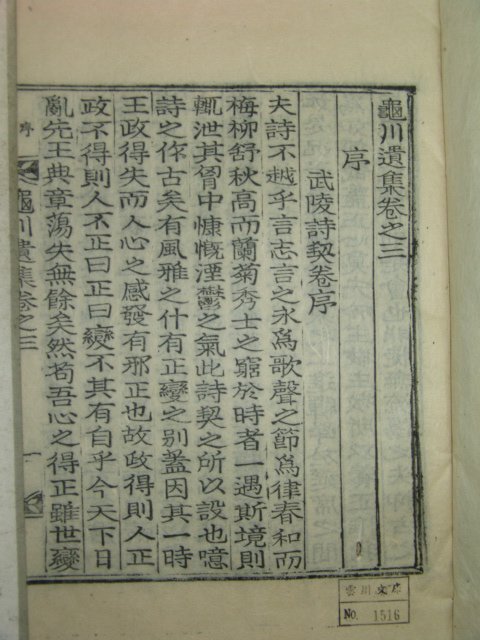 龜川遺集卷之三
序
武陵詩契卷序
夫詩不越乎言志言之永爲歌聲之節爲律春和而
梅柳舒秋高而蘭菊秀士之窮於時者一遇斯境則
輒泄其胷中慷慨湮鬱之氣此詩契之所以設也噫
詩之作古矣有風雅之什有正變之別蓋因其一時
王政得失而人心之感發有邪正也故政得則人正
政不得則人不正曰正曰變不其有自乎今天下日
亂先王典章蕩失無餘矣然苟吾心之得正雖世變
序
龜川遺集卷之三
一
No. 1516